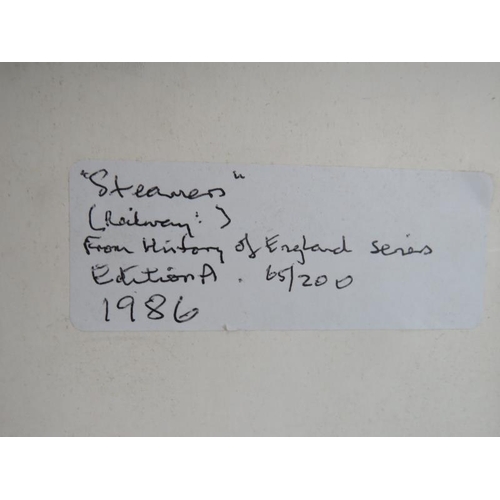 "Steamers"
(Railway:)
From History of England series
Edition A. 65/200
1986